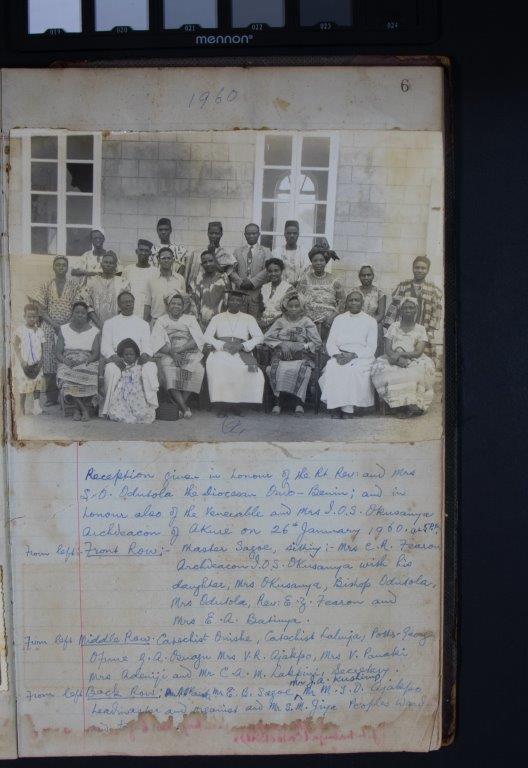 019 020 021 022 023 024
mennon
6
1960
Reception given in honour of the Rt Rev: and Mrs
S.O. Odutola the Diocesan Ondo-Benin; and in
honour also of the Venerable and Mrs I.O.S. Okusanya
Archdeacon of Akure on 26th January 1960. at
From left:- Front Row:- Master Sagoe, sitting:- Mrs C.R. Fearon
Archdeacon I.O.S. Okusanya with his
daughter, Mrs Okusanya, Bishop Odutola,
Mrs Odutola, Rev: E.Z. Fearon and
Mrs E.A. Batimya.
From left Middle Row. Catechist Orishe, Catechist Laluja, George
G.A. Mrs V.R. Ajakpo, Mrs V.
Mrs Adeniji and Mr C.A.M. Secretary.
Mrs J.A.
From left Back Row; Mr E.B. Sagoe, Mr M.J.D. Ajakpo
Headmaster and organist and Mr S.M. Peoples Ward